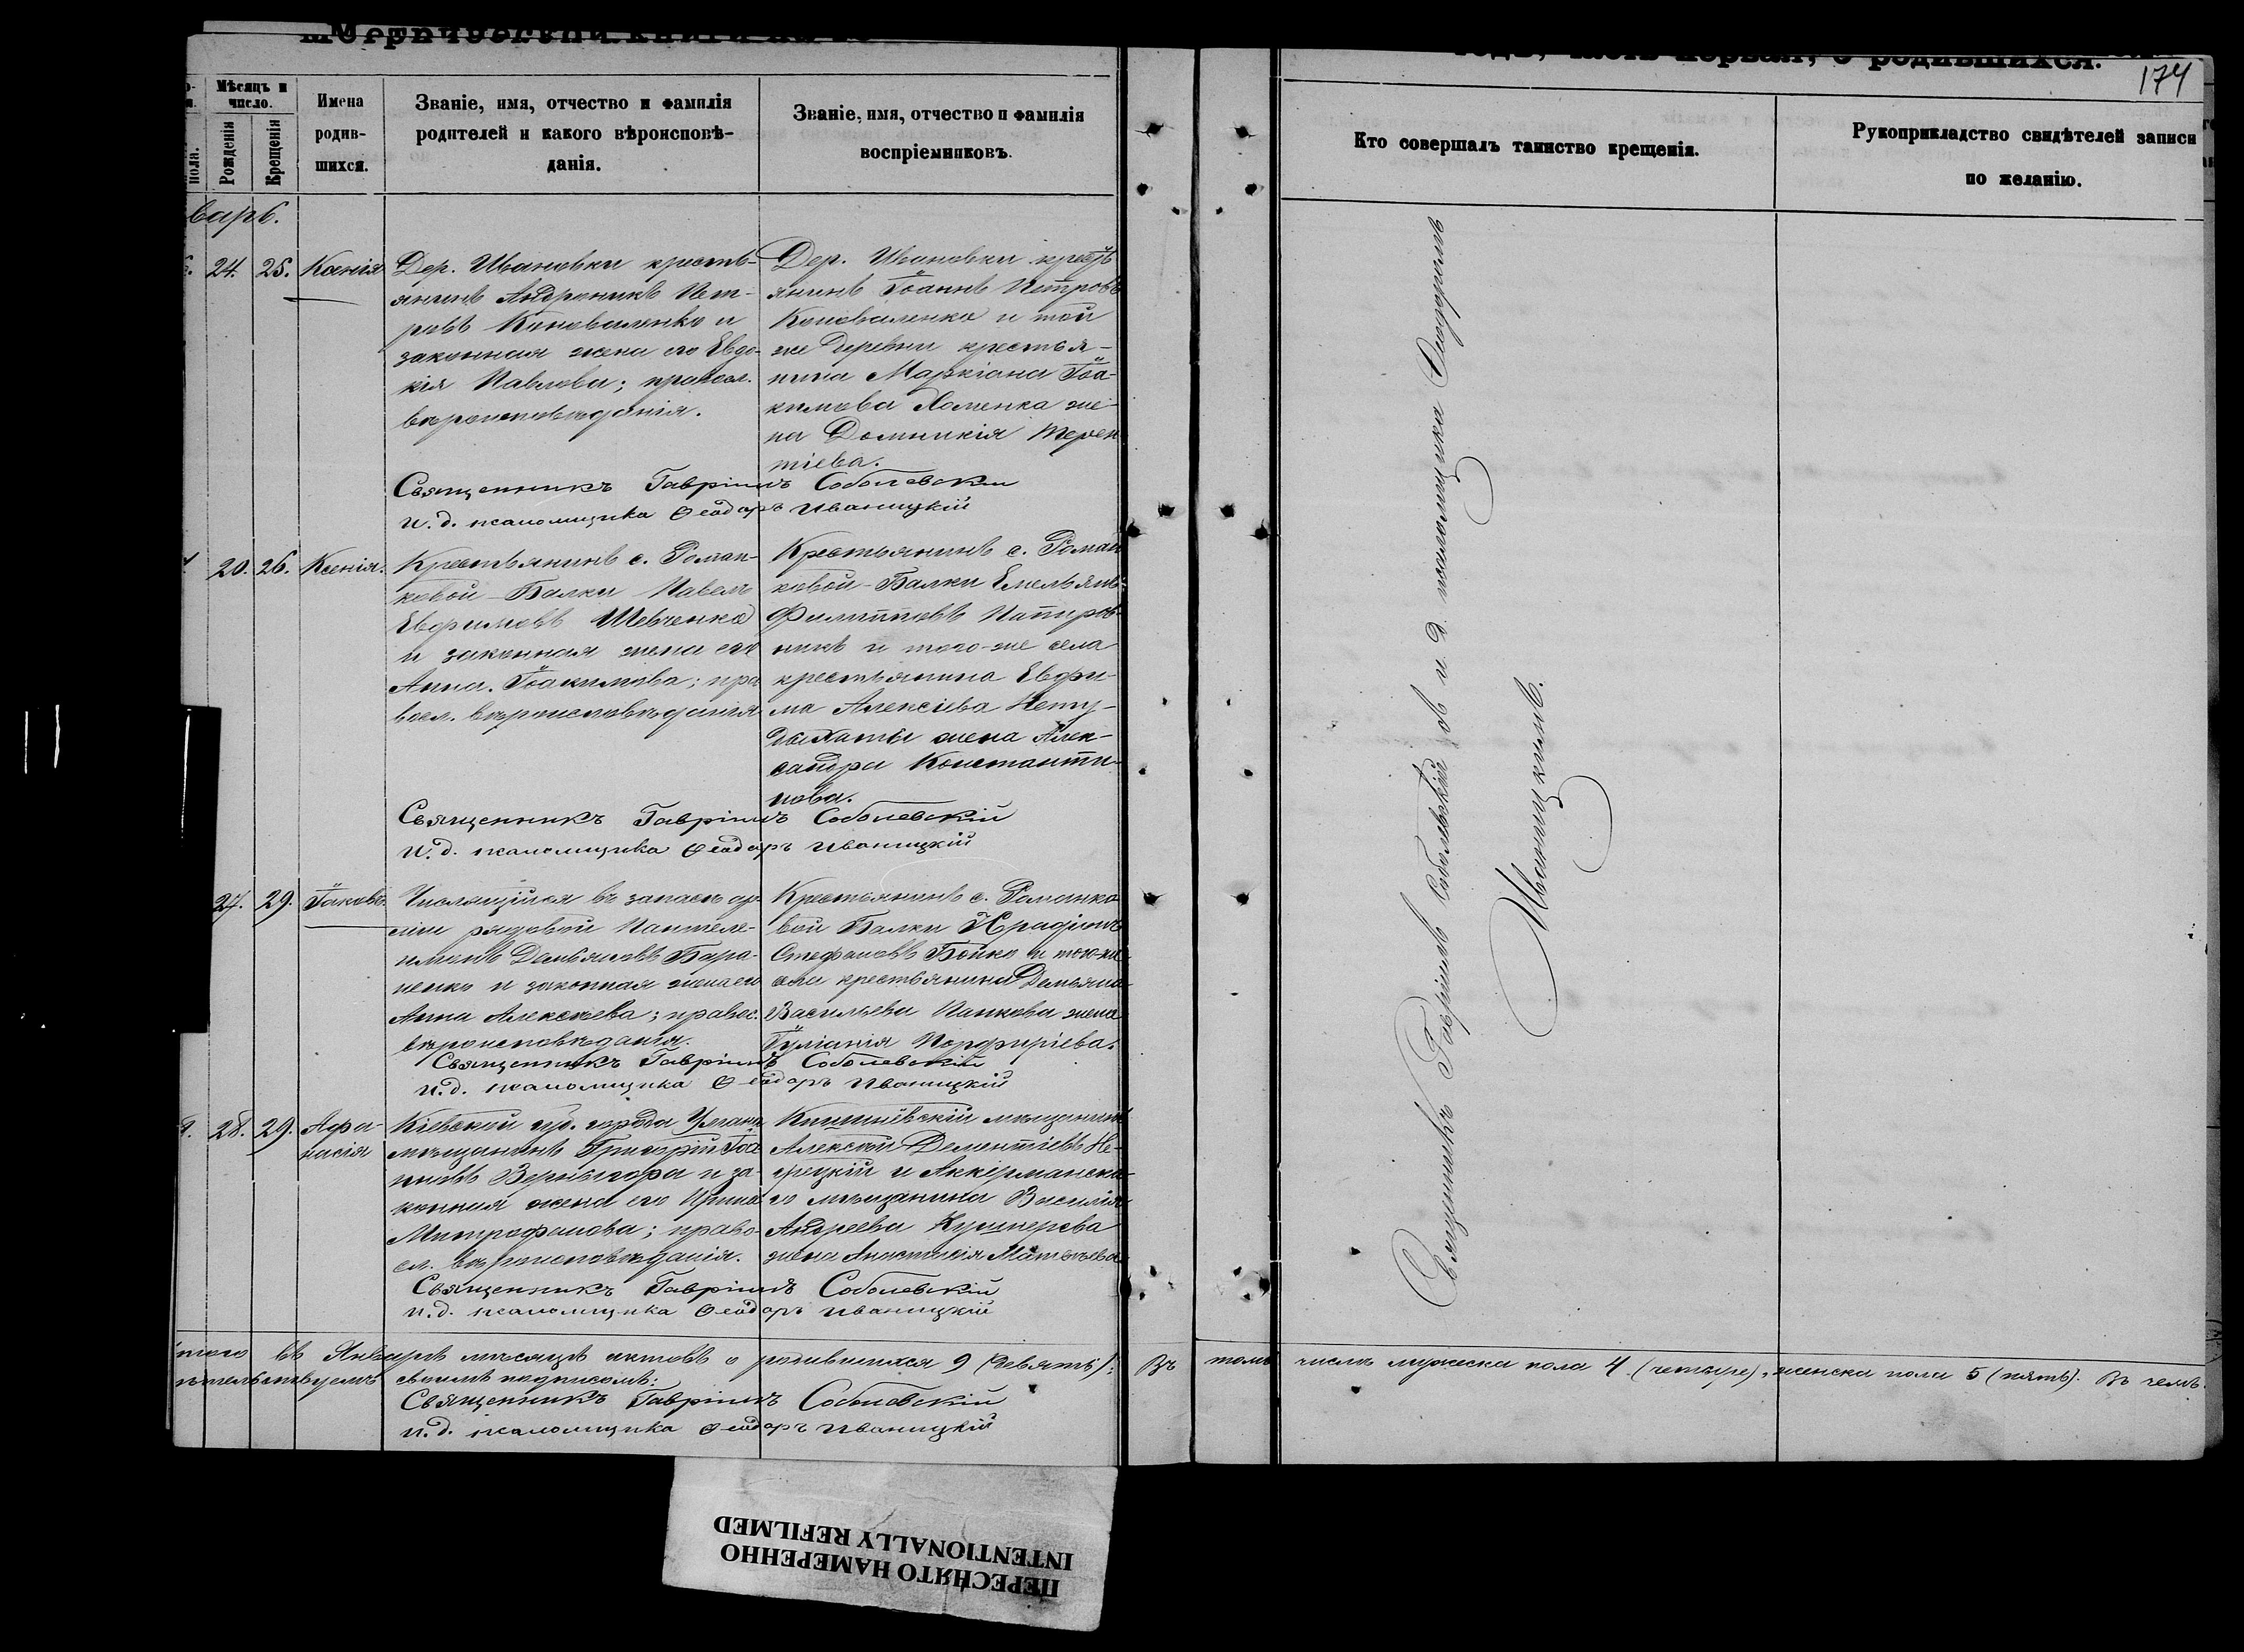 родившихся.
174
Мѣсяцъ и число.
пола.
Рожденія
Крещенія
Имена родив-
шихся.
Званіе, имя, отчество и фамилія
родителей и какого вѣроисповѣ-
данія.
Званіе, имя, отчество и фамилія
воспріемниковъ.
Кто совершалъ таинство крещенія.
Рукоприкладство свидѣтелей записи
по желанію.
варь.
24. 25. Ксенія
Дер. Ивановки кресть-
янинъ Андроникъ Пет-
ровъ Коноваленко и
законная жена его Евдо-
кія Павлова; правосл.
вѣроисповѣданія.
Дер. Ивановки кресть
янинъ Іоаннъ Петровъ
Коноваленко и той
же деревни крестья-
нина Маркіана Іоа-
кимова Хоменка же-
на Домникія Терен
тіева.
Священникъ Гавріилъ Соболевскій
и. д. псаломщика Ѳеодоръ Иваницкій
20. 26. Ксенія.
Крестьянинъ с. Роман-
ковой-Балки Павелъ
Евфимовъ Шевченко
и законная жена его
Анна Іоакимова; пра
восл. вѣроисповѣданія
Крестьянинъ с. Роман
ковой-Балки Емельянъ
Филипповъ
и того-же села
крестьянина Евфи-
ма Алексіева Нету-
дыхаты жена Алек-
сандра Константи-
нова.
Священникъ Гавріилъ Соболевскій
и. д. псаломщика Ѳеодоръ Иваницкій
27. 29. Іаковъ.
Числящійся въ запасѣ ар-
міи рядовой Пантеле-
имонъ Даміановъ Бара-
ненко и законная жена его
Анна Алексѣева; правос.
вѣроисповѣданія.
Крестьянинъ с. Романко
вой Балки
Стефановъ Бойко и того-же
села крестьянина Демьяна
Васильева Панкова жена
Іуліанія Порфиріева.
Священникъ Гавріилъ Соболевскій
и. д. псаломщика Ѳеодоръ Иваницкій
28. 29. Афа-
насія
Кіевской губ. города Умани
мѣщанинъ Григорій Іоа
нновъ Вернигора и за-
конная жена его Ирина
Митрофанова; право-
сл. вѣроисповѣданія.
Кишинёвскій мѣщанинъ
Алексѣй Дементіевъ Не-
и Аккерманска-
го мѣщанина Василія
Андреева Кушнерева
жена Анастасія Матвѣева
Священникъ Гавріилъ Соболевскій
и. д. псаломщика Ѳеодоръ Иваницкій
Священникъ Гавріилъ Соболевскій съ и д. псаломщика Ѳеодоромъ
Иваницкимъ.
Итого въ Январѣ мѣсяцѣ актовъ о родившихся 9 (девять); Въ томъ числѣ мужеска пола 4 (четыре), женска пола 5 (пять). Въ чемъ
своимъ подписомъ:
Священникъ Гавріилъ Соболевскій
и. д. псаломщика Ѳеодоръ Иваницкій
ПЕРЕСНЯТО НАМЕРЕННО
INTENTIONALLY REFILMED